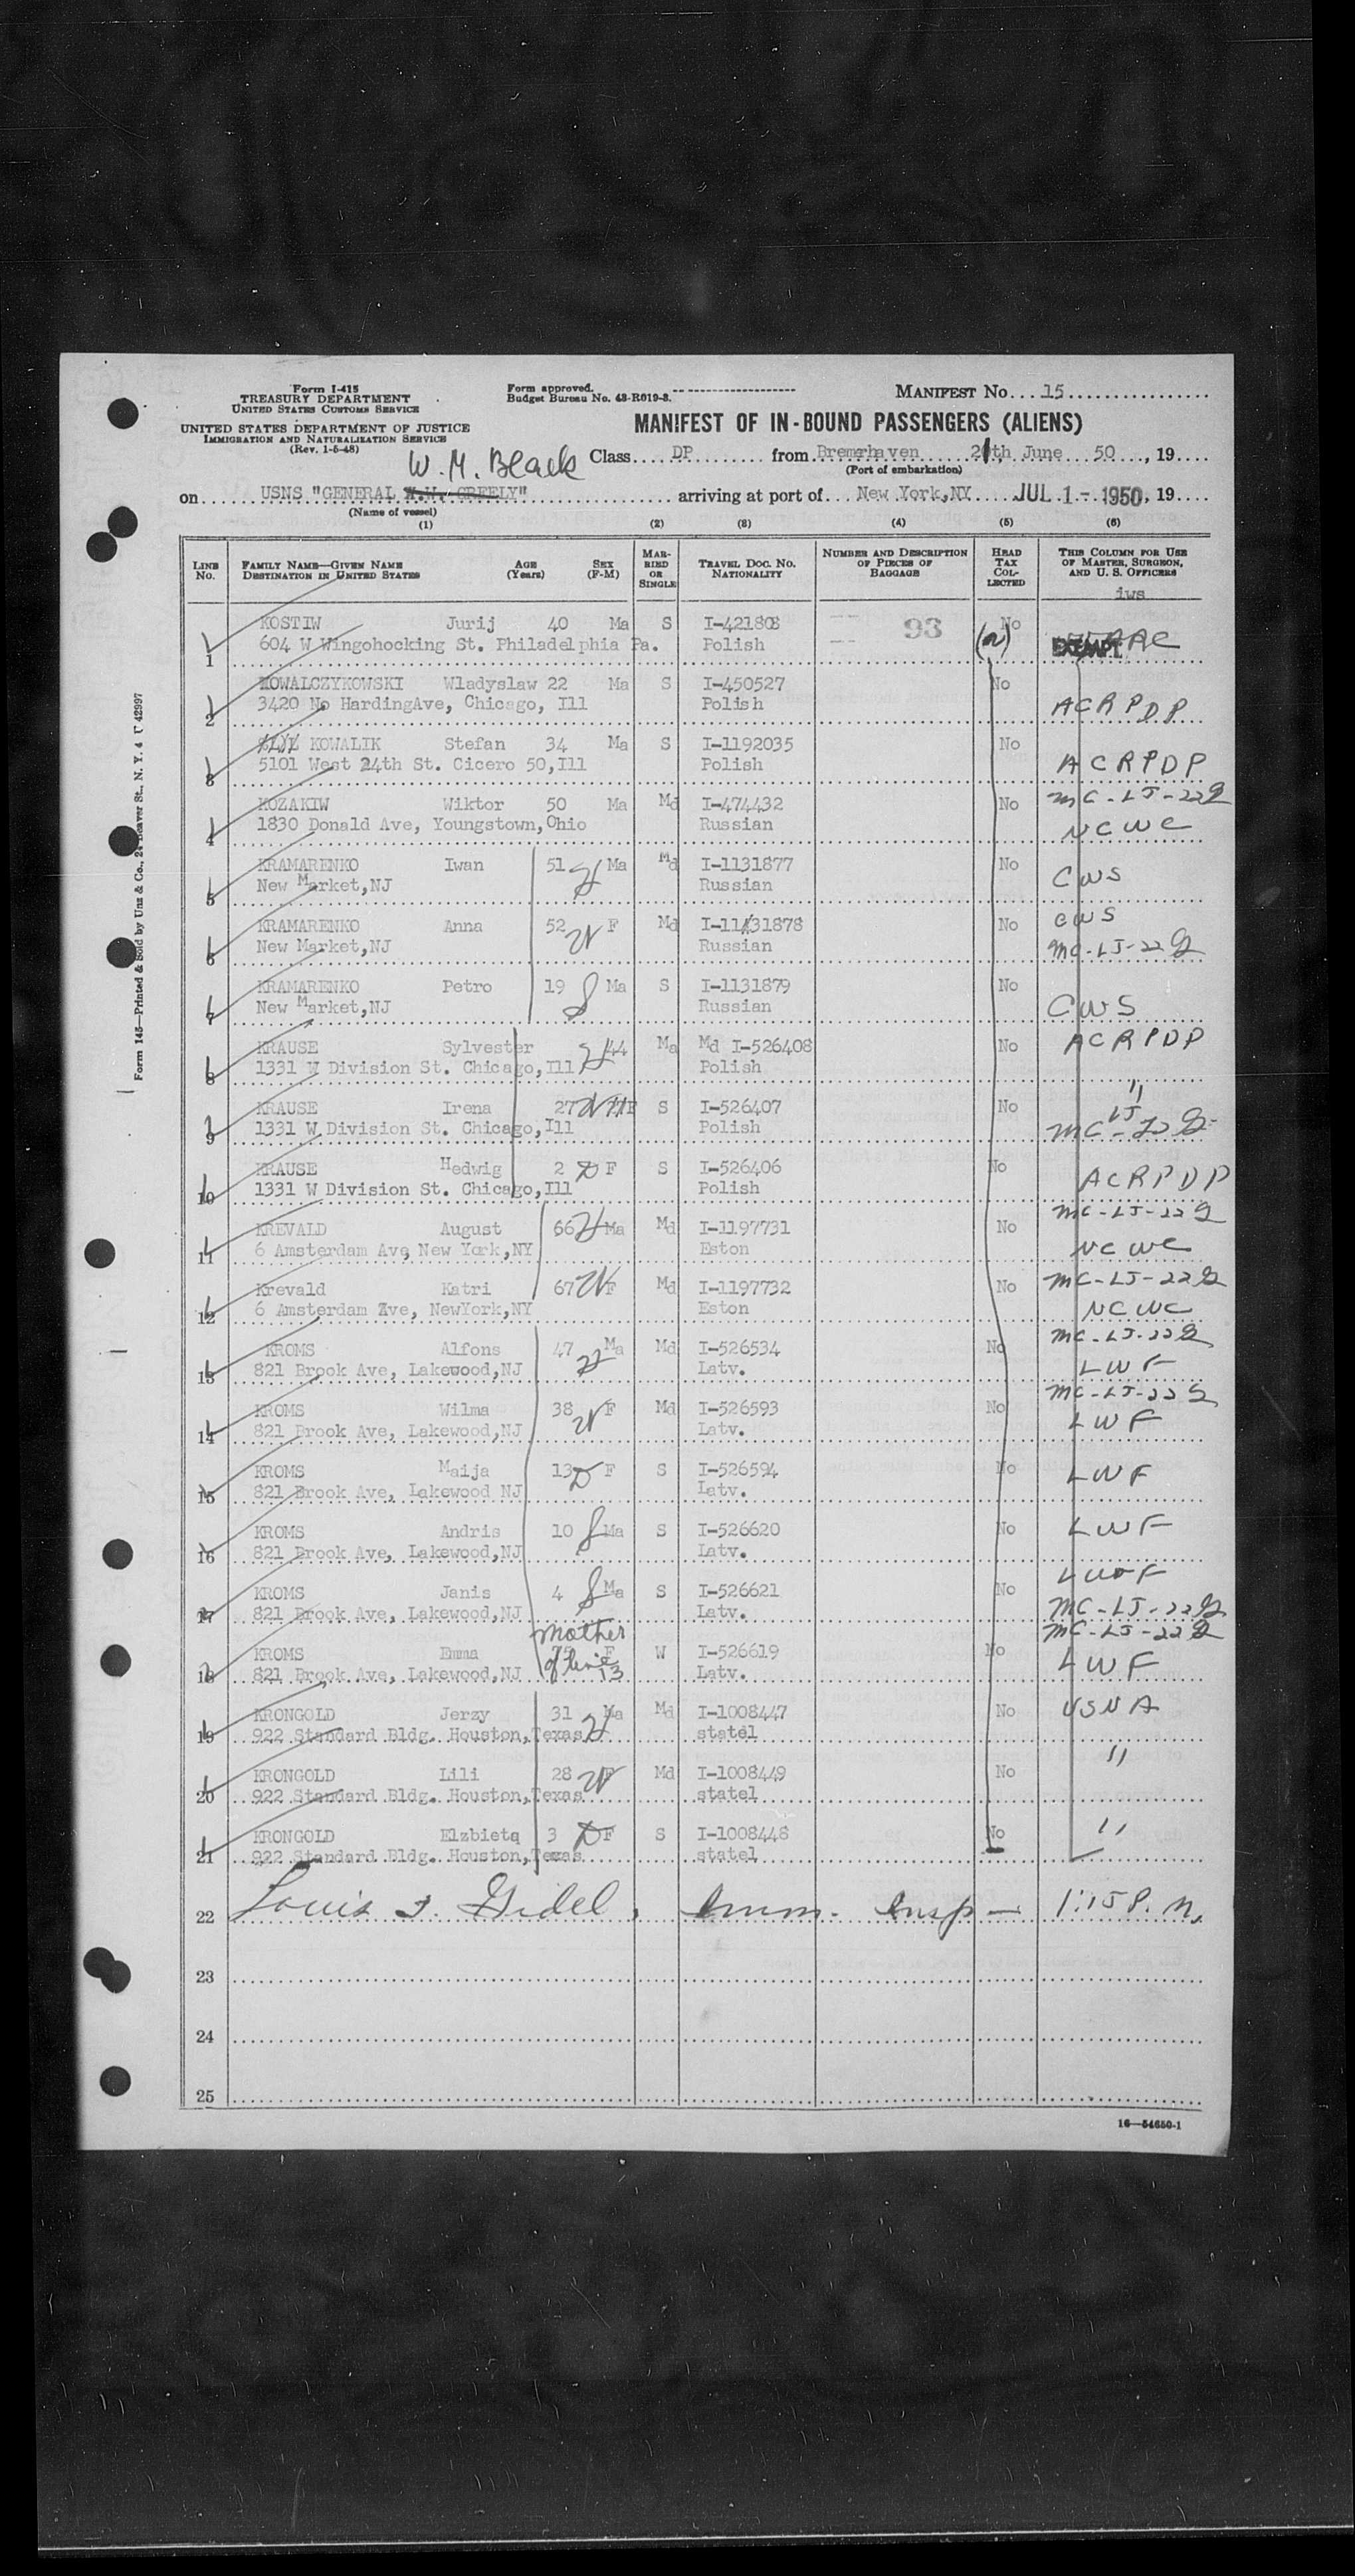 Form I-415
TREASURY DEPARTMENT
UNITED STATES CUSTOMS SERVICE
UNITED STATES DEPARTMENT OF JUSTICE
IMMIGRATION AND NATURALIZATION SERVICE
(Rev. 1-5-48)
Form approved.
Budget Bureau No. 43-R019-3.
MANIFEST No. 15
MANIFEST OF IN-BOUND PASSENGERS (ALIENS)
W. M. Black
Class DP from Bremerhaven 21th June 50, 19
(Port of embarkation)
on USNS "GENERAL A.W. GREELY" arriving at port of New York,NY JUL 1 - 1950, 19
(Name of vessel)
(1) (2) (3) (4) (5) (6)
LINE No. FAMILY NAME—GIVEN NAME DESTINATION IN UNITED STATES AGE (Years) SEX (F-M) MARRIED OR SINGLE TRAVEL DOC. NO. NATIONALITY NUMBER AND DESCRIPTION OF PIECES OF BAGGAGE HEAD TAX COLLECTED THIS COLUMN FOR USE OF MASTER, SURGEON, AND U. S. OFFICERS
iws
KOSTIW Jurij 40 Ma S I-421808 93 No
1 604 W Wingohocking St. Philadelphia Pa. Polish (a) EXEMPT
KOWALCZYKOWSKI Wladyslaw 22 Ma S I-450527 No
2 3420 No HardingAve, Chicago, Ill Polish ACRPDP
KOWALIK Stefan 34 Ma S I-1192035 No
3 5101 West 24th St. Cicero 50,Ill Polish ACRPDP
KOZAKIW Wiktor 50 Ma Md I-474432 No MC-LJ-22
4 1830 Donald Ave, Youngstown,Ohio Russian NCWC
KRAMARENKO Iwan 51 Ma Md I-1131877 No
5 New Market,NJ Russian CWS
KRAMARENKO Anna 52 F Md I-1131878 No CWS
6 New Market,NJ Russian MC-LJ-22
KRAMARENKO Petro 19 Ma S I-1131879 No
7 New Market,NJ Russian CWS
KRAUSE Sylvester 44 Ma Md I-526408 No ACRPDP
8 1331 W Division St. Chicago,Ill Polish
KRAUSE Irena 27 F S I-526407 No "
9 1331 W Division St. Chicago,Ill Polish MC-LJ-22
KRAUSE Hedwig 2 F S I-526406 No
10 1331 W Division St. Chicago,Ill Polish ACRPDP
KREVALD August 66 Ma Md I-1197731 No MC-LJ-22
11 6 Amsterdam Ave New York,NY Eston NCWC
Krevald Katri 67 F Md I-1197732 No MC-LJ-22
12 6 Amsterdam Ave, NewYork,NY Eston NCWC
KROMS Alfons 47 Ma Md I-526534 No MC-LJ-22
13 821 Brook Ave, Lakewood,NJ Latv. LWF
KROMS Wilma 38 F Md I-526593 No MC-LJ-22
14 821 Brook Ave, Lakewood,NJ Latv. LWF
KROMS Maija 13 F S I-526594 No LWF
15 821 Brook Ave, Lakewood NJ Latv.
KROMS Andris 10 Ma S I-526620 No LWF
16 821 Brook Ave, Lakewood,NJ Latv.
KROMS Janis 4 Ma S I-526621 No LWF
17 821 Brook Ave, Lakewood,NJ Latv. MC-LJ-22
mother of line 13 MC-LJ-22
KROMS Emma F W I-526619 No
18 821 Brook Ave, Lakewood,NJ Latv. LWF
KRONGOLD Jerzy 31 Ma Md I-1008447 No USNA
19 922 Standard Bldg. Houston,Texas statel
KRONGOLD Lili 28 F Md I-1008449 No "
20 922 Standard Bldg. Houston,Texas statel
KRONGOLD Elzbieta 3 F S I-1008448 No "
21 922 Standard Bldg. Houston,Texas statel
22 Louis Imm. Insp — 1:15 P. M.
23
24
25
16—54650-1
Form 145—Printed & Sold by Unz & Co., 24 Beaver St., N. Y. 4 U 42997